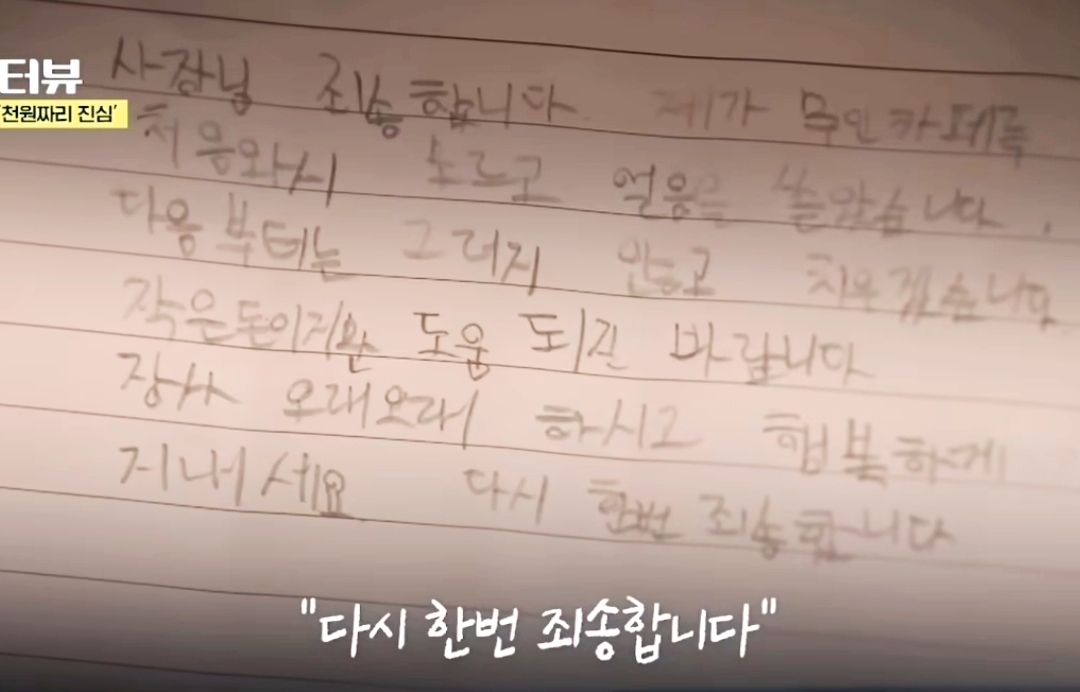 터뷰
'천원짜리 진심'
사장님 죄송합니다. 제가 무인카페를
처음와서 모르고 얼음을 쏟았습니다.
다음부터는 그러지 않고 치우겠습니다
작은돈이지만 도움 되긴 바랍니다
장사 오래오래 하시고 행복하게
지내세요 다시 한번 죄송합니다
"다시 한번 죄송합니다"